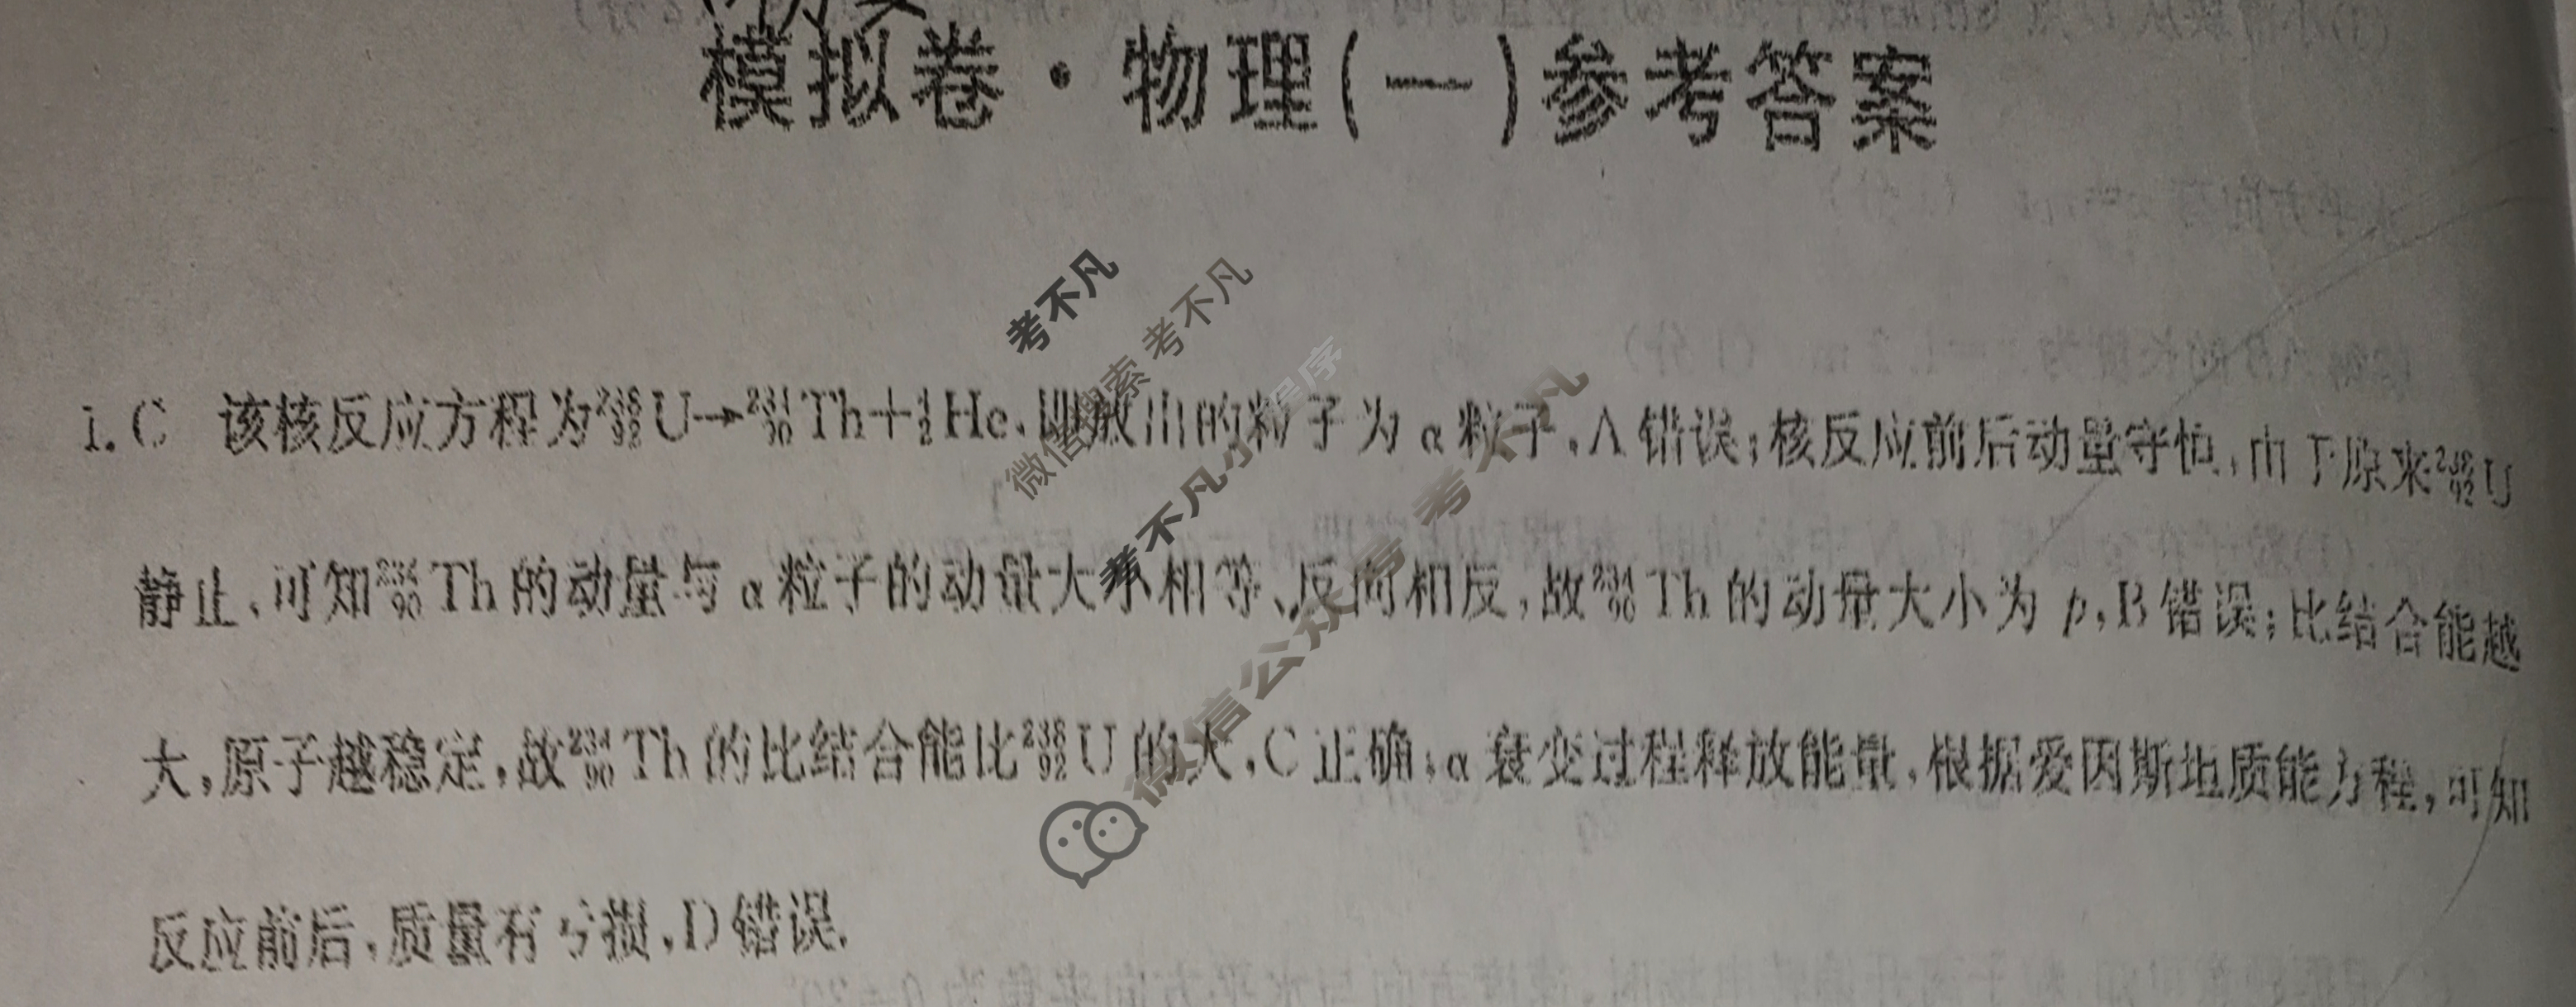 模拟卷·物理(一)参考答案
考不凡
微信搜索 考不凡
1. C 该核反应方程为²³⁸₉₂U→²³⁴₉₀Th+⁴₂He,即放出的粒子为 α 粒子,A 错误;核反应前后动量守恒,由于原来²³⁸₉₂U
考不凡小程序
静止,可知²³⁴₉₀Th 的动量与 α 粒子的动量大小相等、反向相反,故²³⁴₉₀Th 的动量大小为 p,B 错误;比结合能越
微信公众号 考不凡
大,原子越稳定,故²³⁴₉₀Th 的比结合能比²³⁸₉₂U 的大,C 正确;α 衰变过程释放能量,根据爱因斯坦质能方程,可知
反应前后,质量有亏损,D 错误.